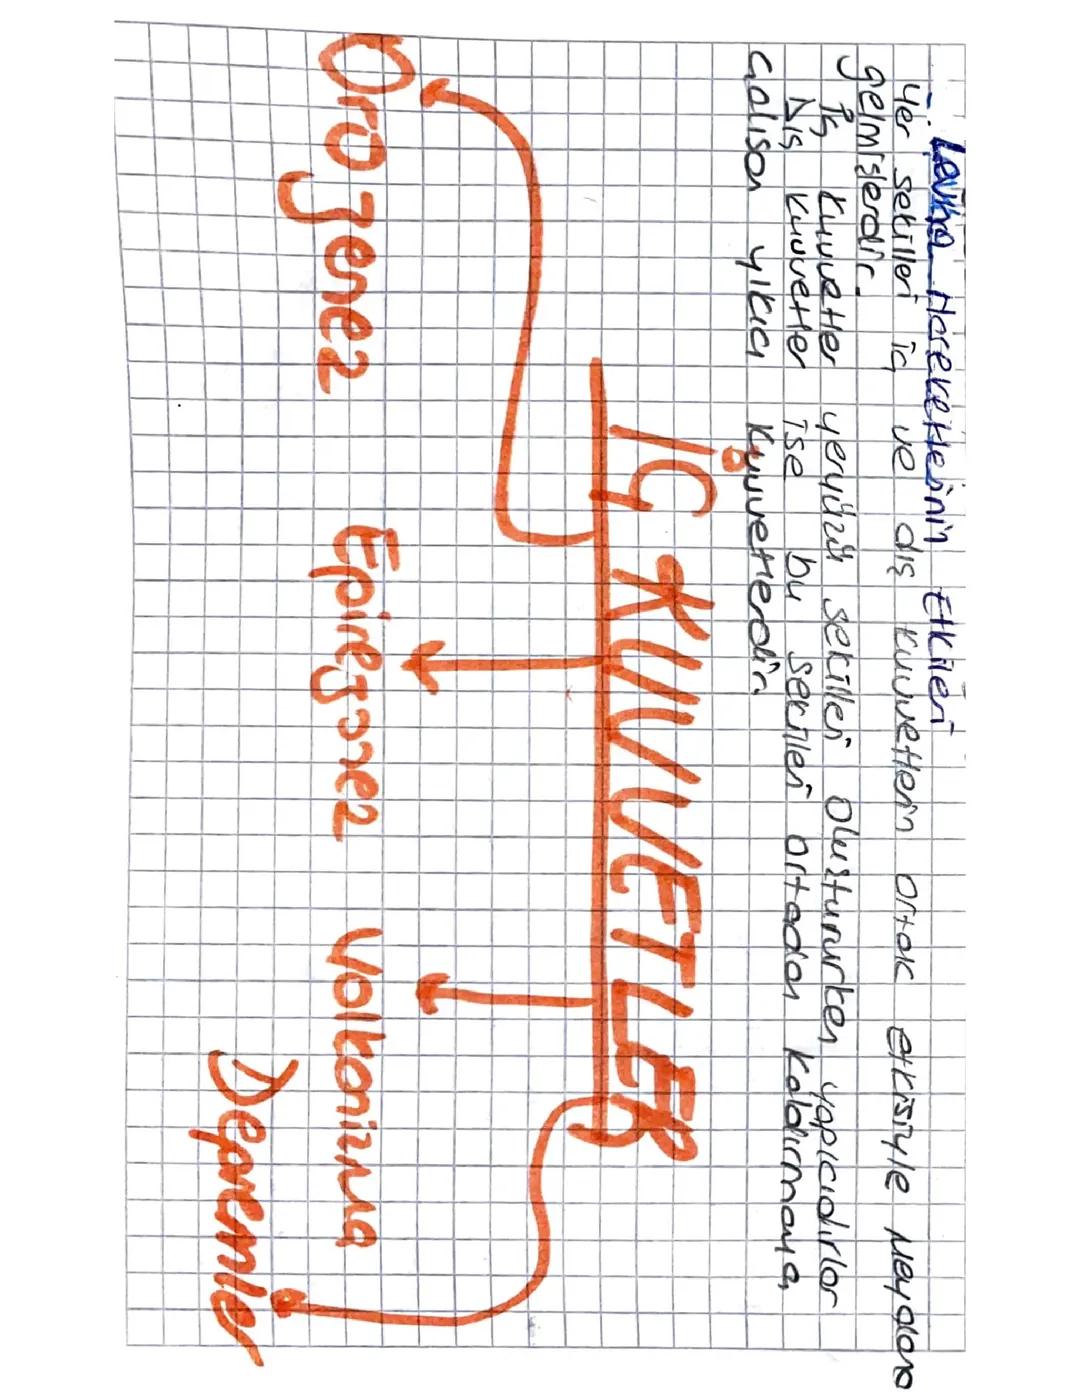 - Levha Hareketlerinin Etkileri
Yer şekilleri iç ve dış kuvvetlerin ortak etkisiyle meydana
gelmişlerdir.
İç kuvvetler yeryüzü şekilleri oluştururken yapıcıdırlar
Dış kuvvetler ise bu şekilleri ortadan kaldırmaya
çalışan yıkıcı kuvvetlerdir.
İÇ KUVVETLER
Orojenez
Epirojenez
Volkanizma
Depremler